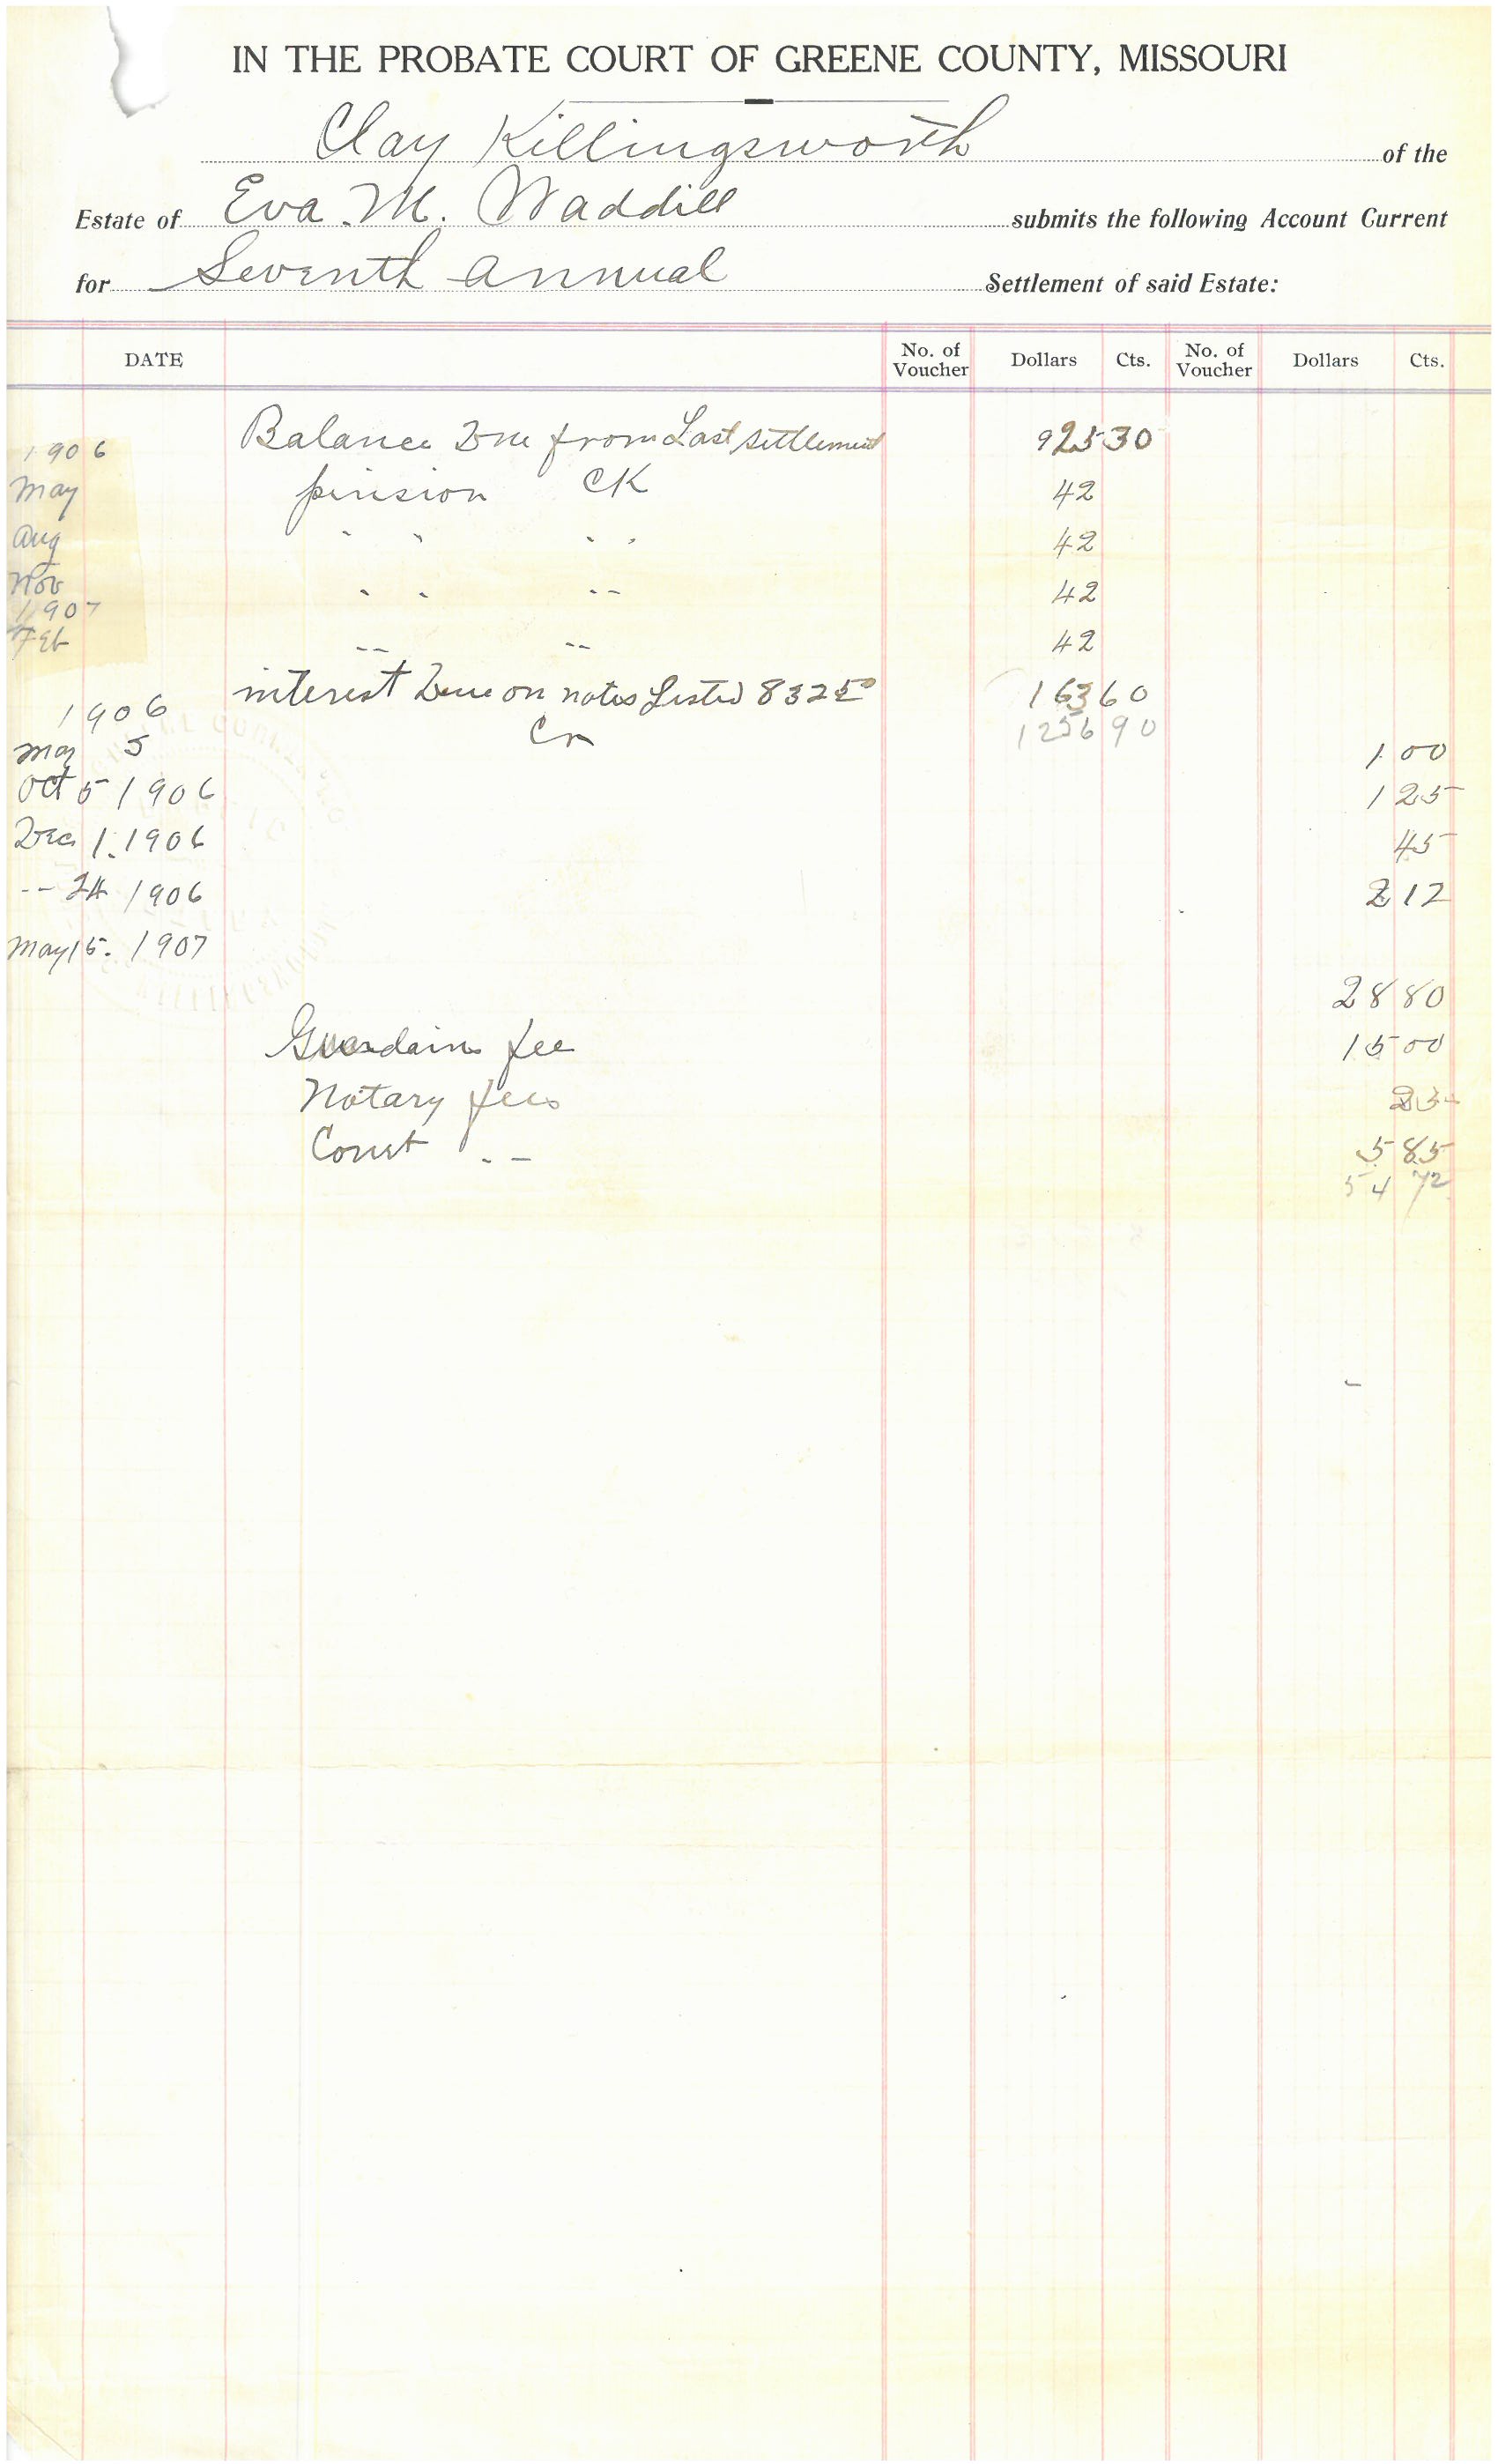 IN THE PROBATE COURT OF GREENE COUNTY, MISSOURI
Clay Killingsworth of the
Estate of Eva. M. Waddill submits the following Account Current
for Seventh annual Settlement of said Estate:
DATE No. of Voucher Dollars Cts. No. of Voucher Dollars Cts.
1906 Balance Due from Last settlement 925 30
May pension CK 42
Aug " " " " 42
Nov " " " " 42
1907
Feb " " " " 42
interest Due on notes Listed 832 50 163 60
1906 Cr 1256 90
may 5 1 00
Oct 5 1906 1 25
Dec 1. 1906 45
-- 24 1906 2 12
may 15. 1907
28 80
Guardains fee 15 00
Notary fees
Court " " 5 85
54 72